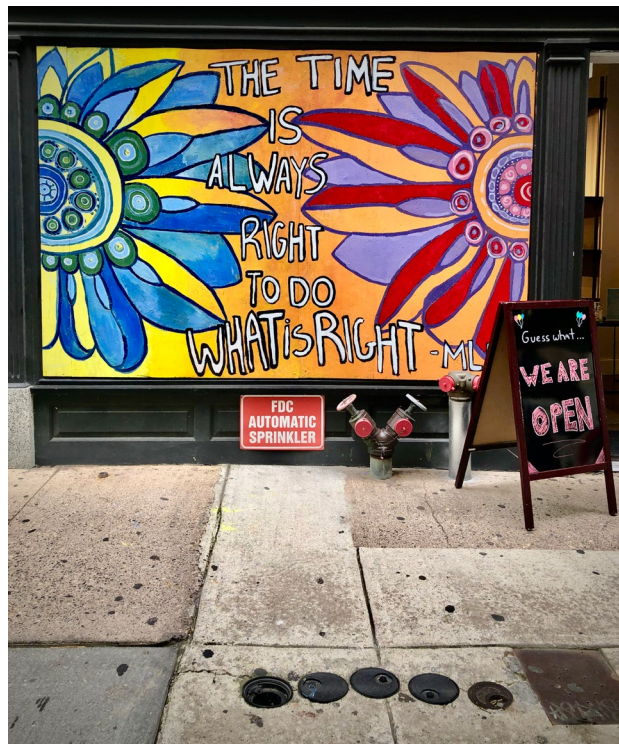 THE TIME
IS
ALWAYS
RIGHT
TO DO
WHAT is RIGHT -ML
FDC
AUTOMATIC
SPRINKLER
Guess what...
WE ARE
OPEN